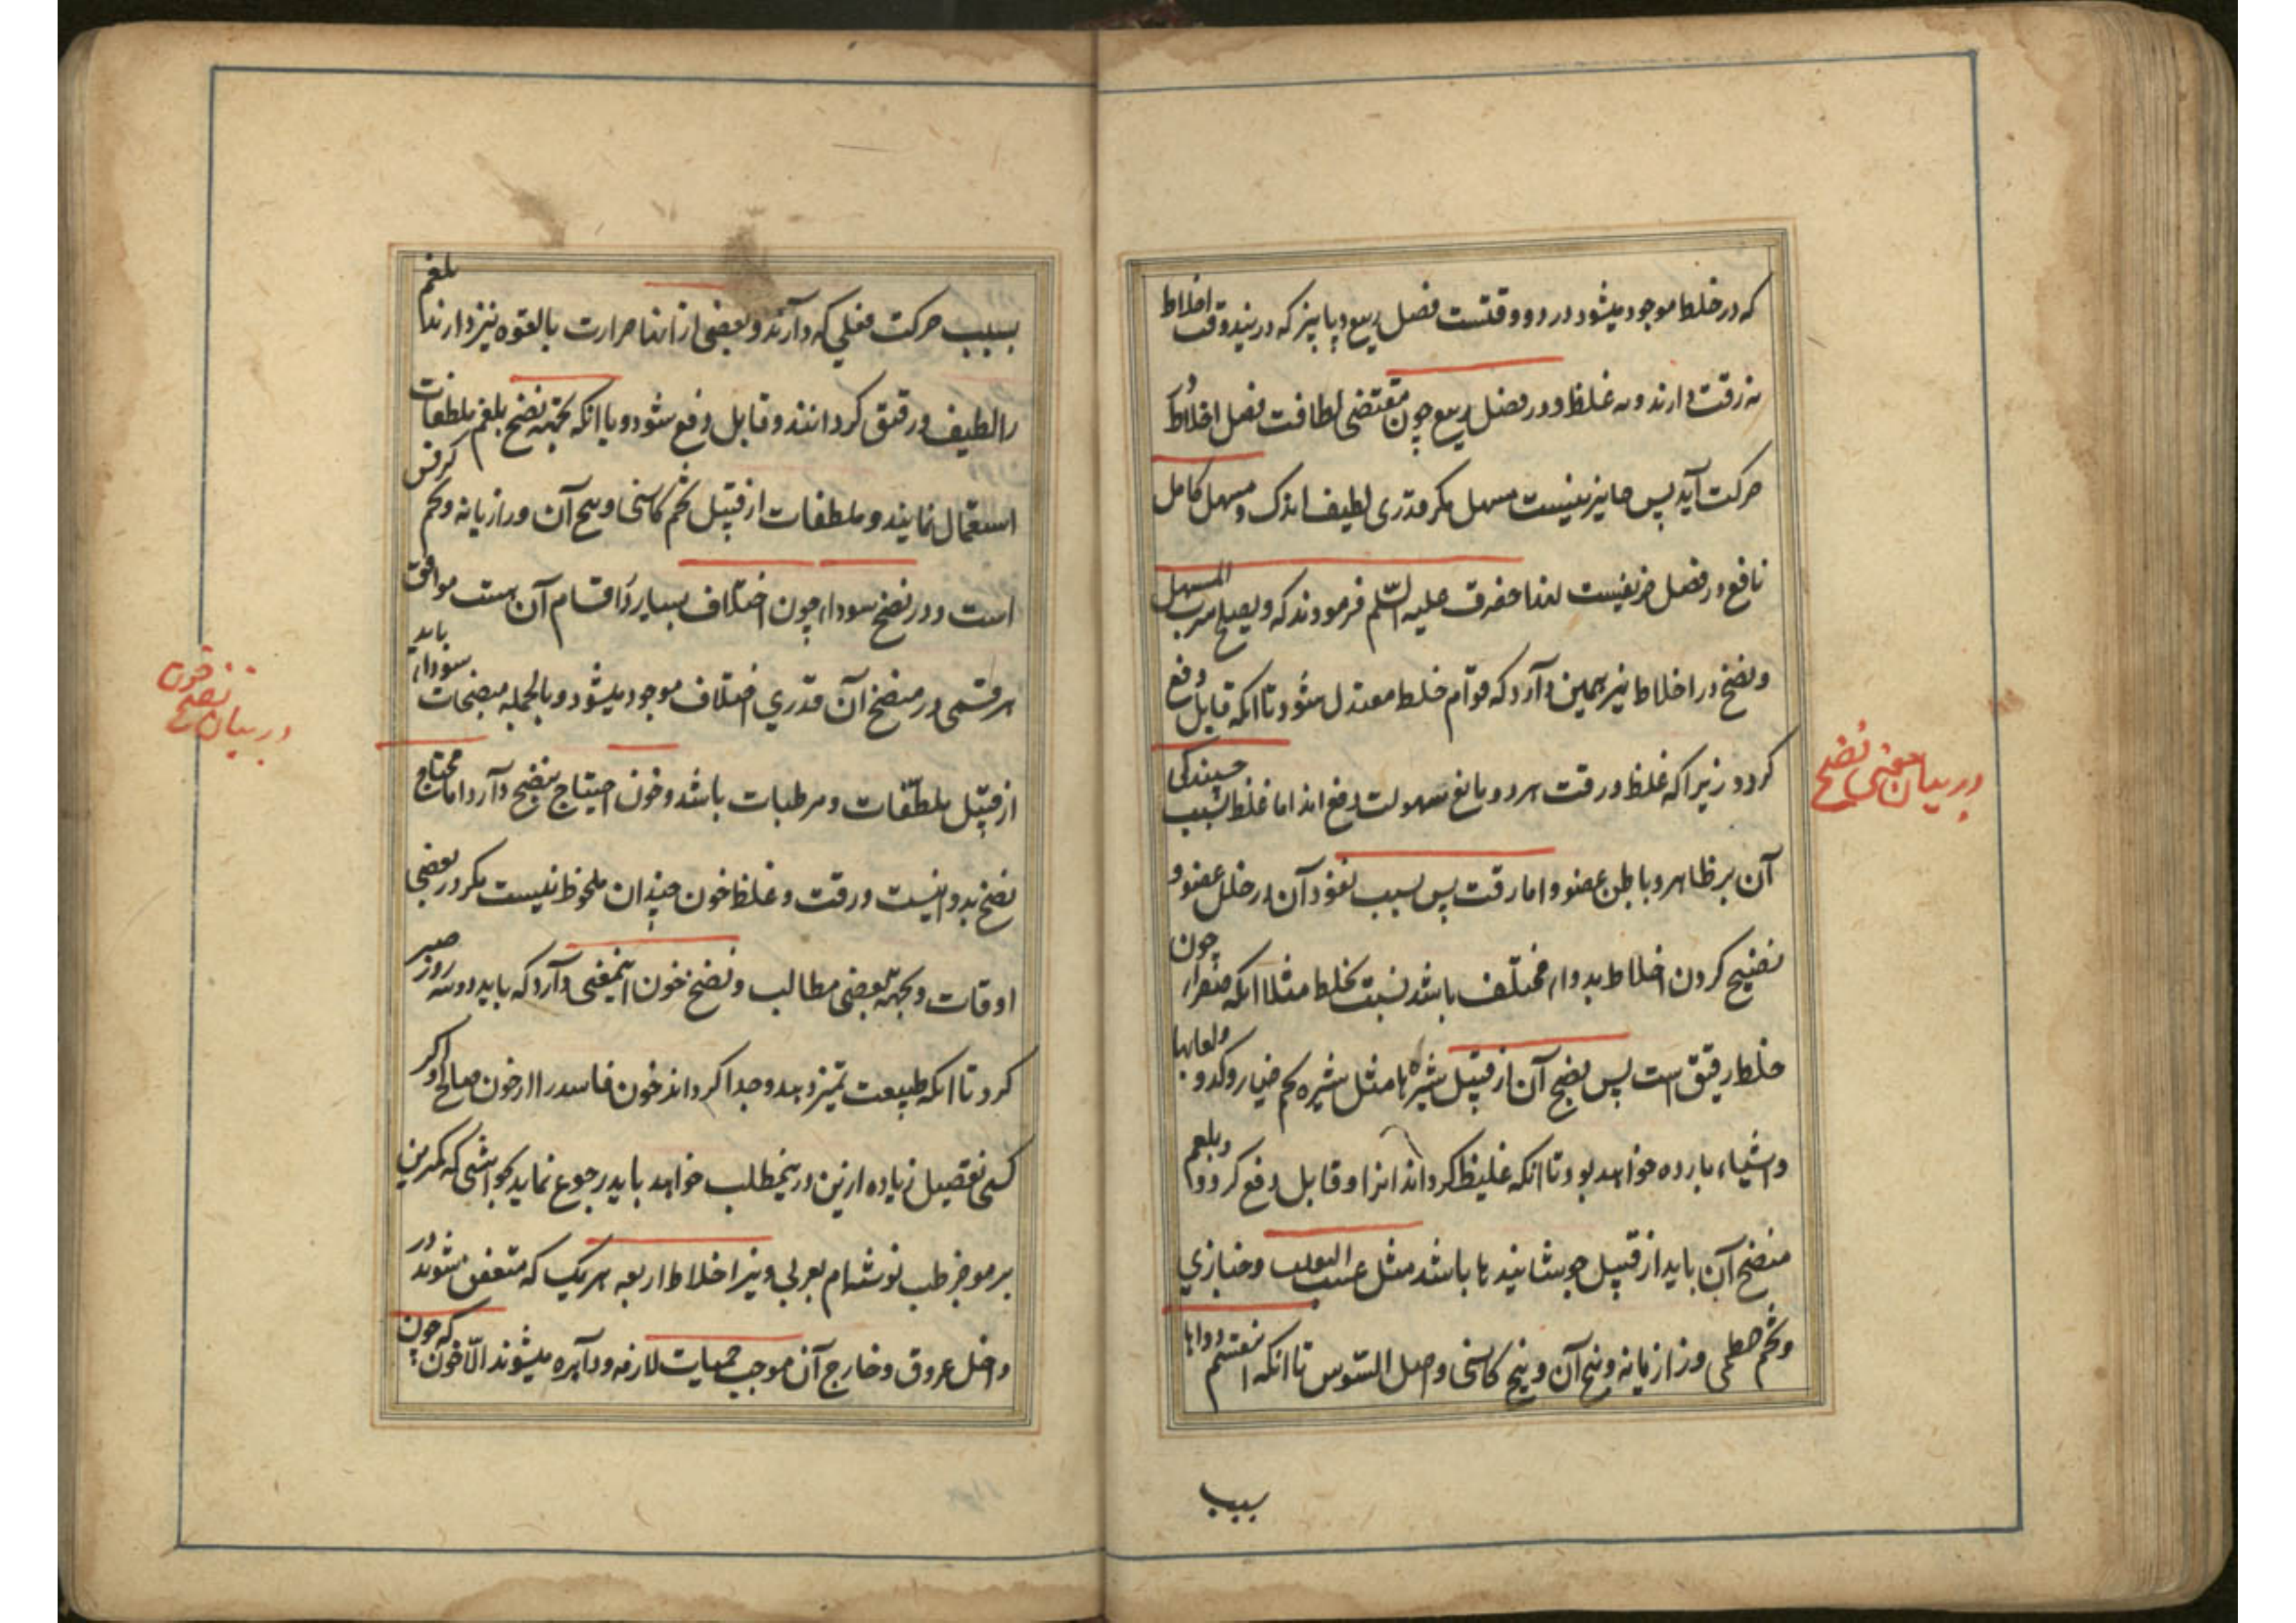 که در خلط موجود میشود در دو وقتست فصل ربیع و پاییز که درینوقت اخلاط
نه رقت دارند و نه غلظ و در فصل ربیع چون مقتضی لطافت فصل اخلاط در
حرکت آید پس جایز نیست مسهل مگر قدری لطیف اندک و مسهل کامل
نافع در فصل خریفیست لهذا حضرت علیه السّلم فرمودند که ویصلح شرب المسهل
و نضج در اخلاط نیز همین دآرد که قوآم خلط معتدل شود تا انکه قابل دفع
کردد زیرا که غلظ و رقت هر دو مانع سهولت دفع اند اما غلظ بسبب چسپندکی
آن بر ظاهر و باطن عضو و اما رقت پس بسبب نفوذ آن در خلل عضو و
نضیج کردن اخلاط بدوا مختلف باشد نسبت بخلط مثلا انکه صفرا چون
خلط رقیق است پس نضج آن از قبیل شیره ها مثل شیره تخم خیار و کدو و لعابها
و اشیاء بارده خواهد بود تا انکه غلیظ کرداند انرا و قابل دفع کردد و بلغم
منضج آن باید از قبیل جوشانیدها باشد مثل عنب الثعلب و خبازی
و تخم خطمی و رازیانه و بیخ آن و بیخ کاسنی و اصل السّوس تا انکه اینقسم دواها
سبب
در بیان معنی نضج
بسبب حرکت فعلی که دآرند و بعضی از انها حرارت بالقوه نیز دارند بلغم
را لطیف و رقیق کردانند و قابل دفع شود و یا انکه بجهة نضج بلغم ملطفات
استعمال نمایند و ملطفات از قبیل تخم کاسنی و بیخ آن و رازیانه و تخم کرفس
است و در نضج سودا چون اختلاف بسیار در اقسام آن هست موافق
هر قسمی در منضج آن قدری اختلاف موجود میشود و بالجمله منضجات سودا باید
از قبیل ملطّفات و مرطبات باشد و خون احتیاج بنضج دآرد اما محتاج
نضج بدوا نیست و رقت و غلظ خون چندان ملحوظ نیست مکر در بعضی
اوقات و بجهة بعضی مطالب و نضج خون اینمعنی دآرد که باید دو سه روز صبر
کرد تا انکه طبیعت تمیز دهد و جدا کرداند خون فاسد را از خون صالح و اکر
کسی تفصیل زیاده ازین درینمطلب خواهد باید رجوع نماید بحواشی که کمترین
بر موجز طب نوشته‌ام بعربی و نیز اخلاط اربعه هر یک که متعفن شوند در
داخل عروق و خارج آن موجب حمیات لازمه و دآیره میشوند الّا خون که چون
در بیان نضج خون